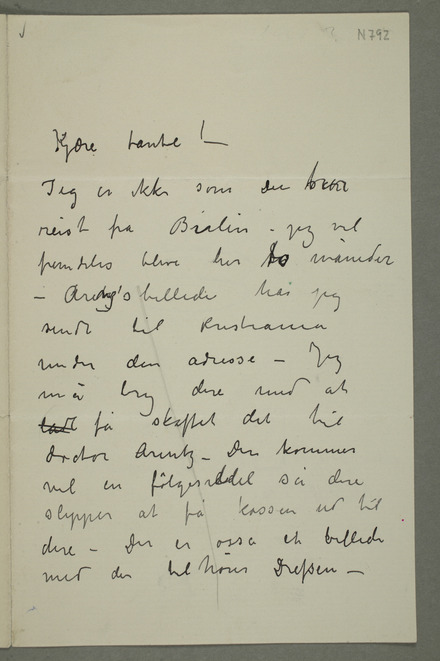 N 792
Kjære tante! –
Jeg er ikke som du tror
reist fra Berlin – jeg vil
fremdeles blive her to måneder
– Arentz's billede har jeg
sendt til Kristiania
under din adresse – Jeg
må bry dere med at
få skaffet det til
doctor Arentz – Der kommer
vel en følgeseddel så dere
slipper at få kassen ud til
dere – Der er også et billede
med der tilhører Dreßen –